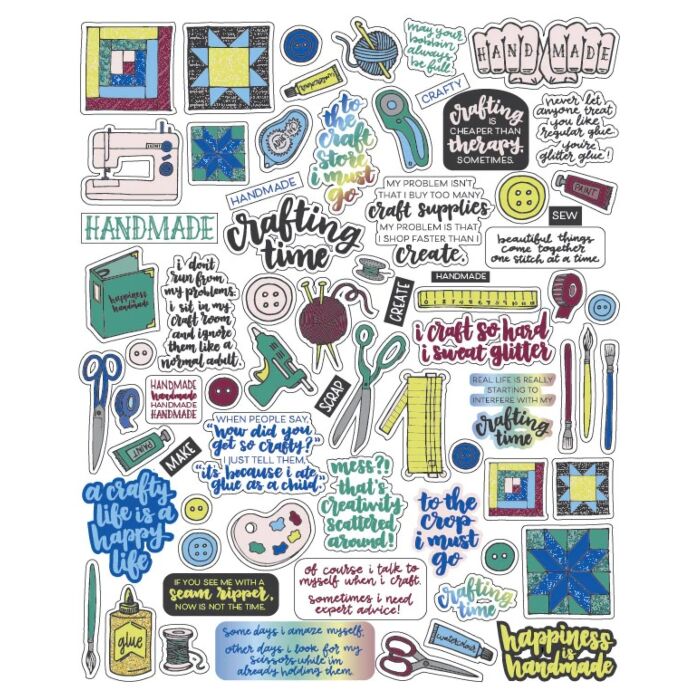 may your
bobbin
always
be full.
HANDMADE
watercolour
CRAFTY
to
the
craft
store i
must
go
crafting
IS
CHEAPER THAN
therapy.
SOMETIMES.
never let
anyone treat
you like
regular glue.
you're
glitter glue!
PAINT
SEW
HANDMADE
MY PROBLEM ISN'T
THAT I BUY TOO MANY
craft supplies.
MY PROBLEM IS THAT
I SHOP FASTER THAN I
create.
HANDMADE
crafting
time
beautiful things
come together
one stitch at a time.
happiness
is
handmade
i don't
run from
my problems.
i sit in my
craft room
and ignore
them like a
normal adult.
CREATE
HANDMADE
i craft so hard
i sweat glitter
SCRAP
HANDMADE
handmade
HANDMADE
HANDMADE
REAL LIFE IS REALLY
STARTING TO
INTERFERE WITH MY
crafting
time
PAINT
MAKE
WHEN PEOPLE SAY,
"how did you
get so crafty?"
I JUST TELL THEM,
"it's because i ate
glue as a child."
mess?!
that's
creativity
scattered
around!
a crafty
life is a
happy
life
to the
crop
i must
go
IF YOU SEE ME WITH A
seam ripper,
NOW IS NOT THE TIME.
of course i talk to
myself when i craft.
sometimes i need
expert advice!
crafting
time
glue
some days i amaze myself.
other days i look for my
scissors while i'm
already holding them.
watercolour
happiness
is
handmade